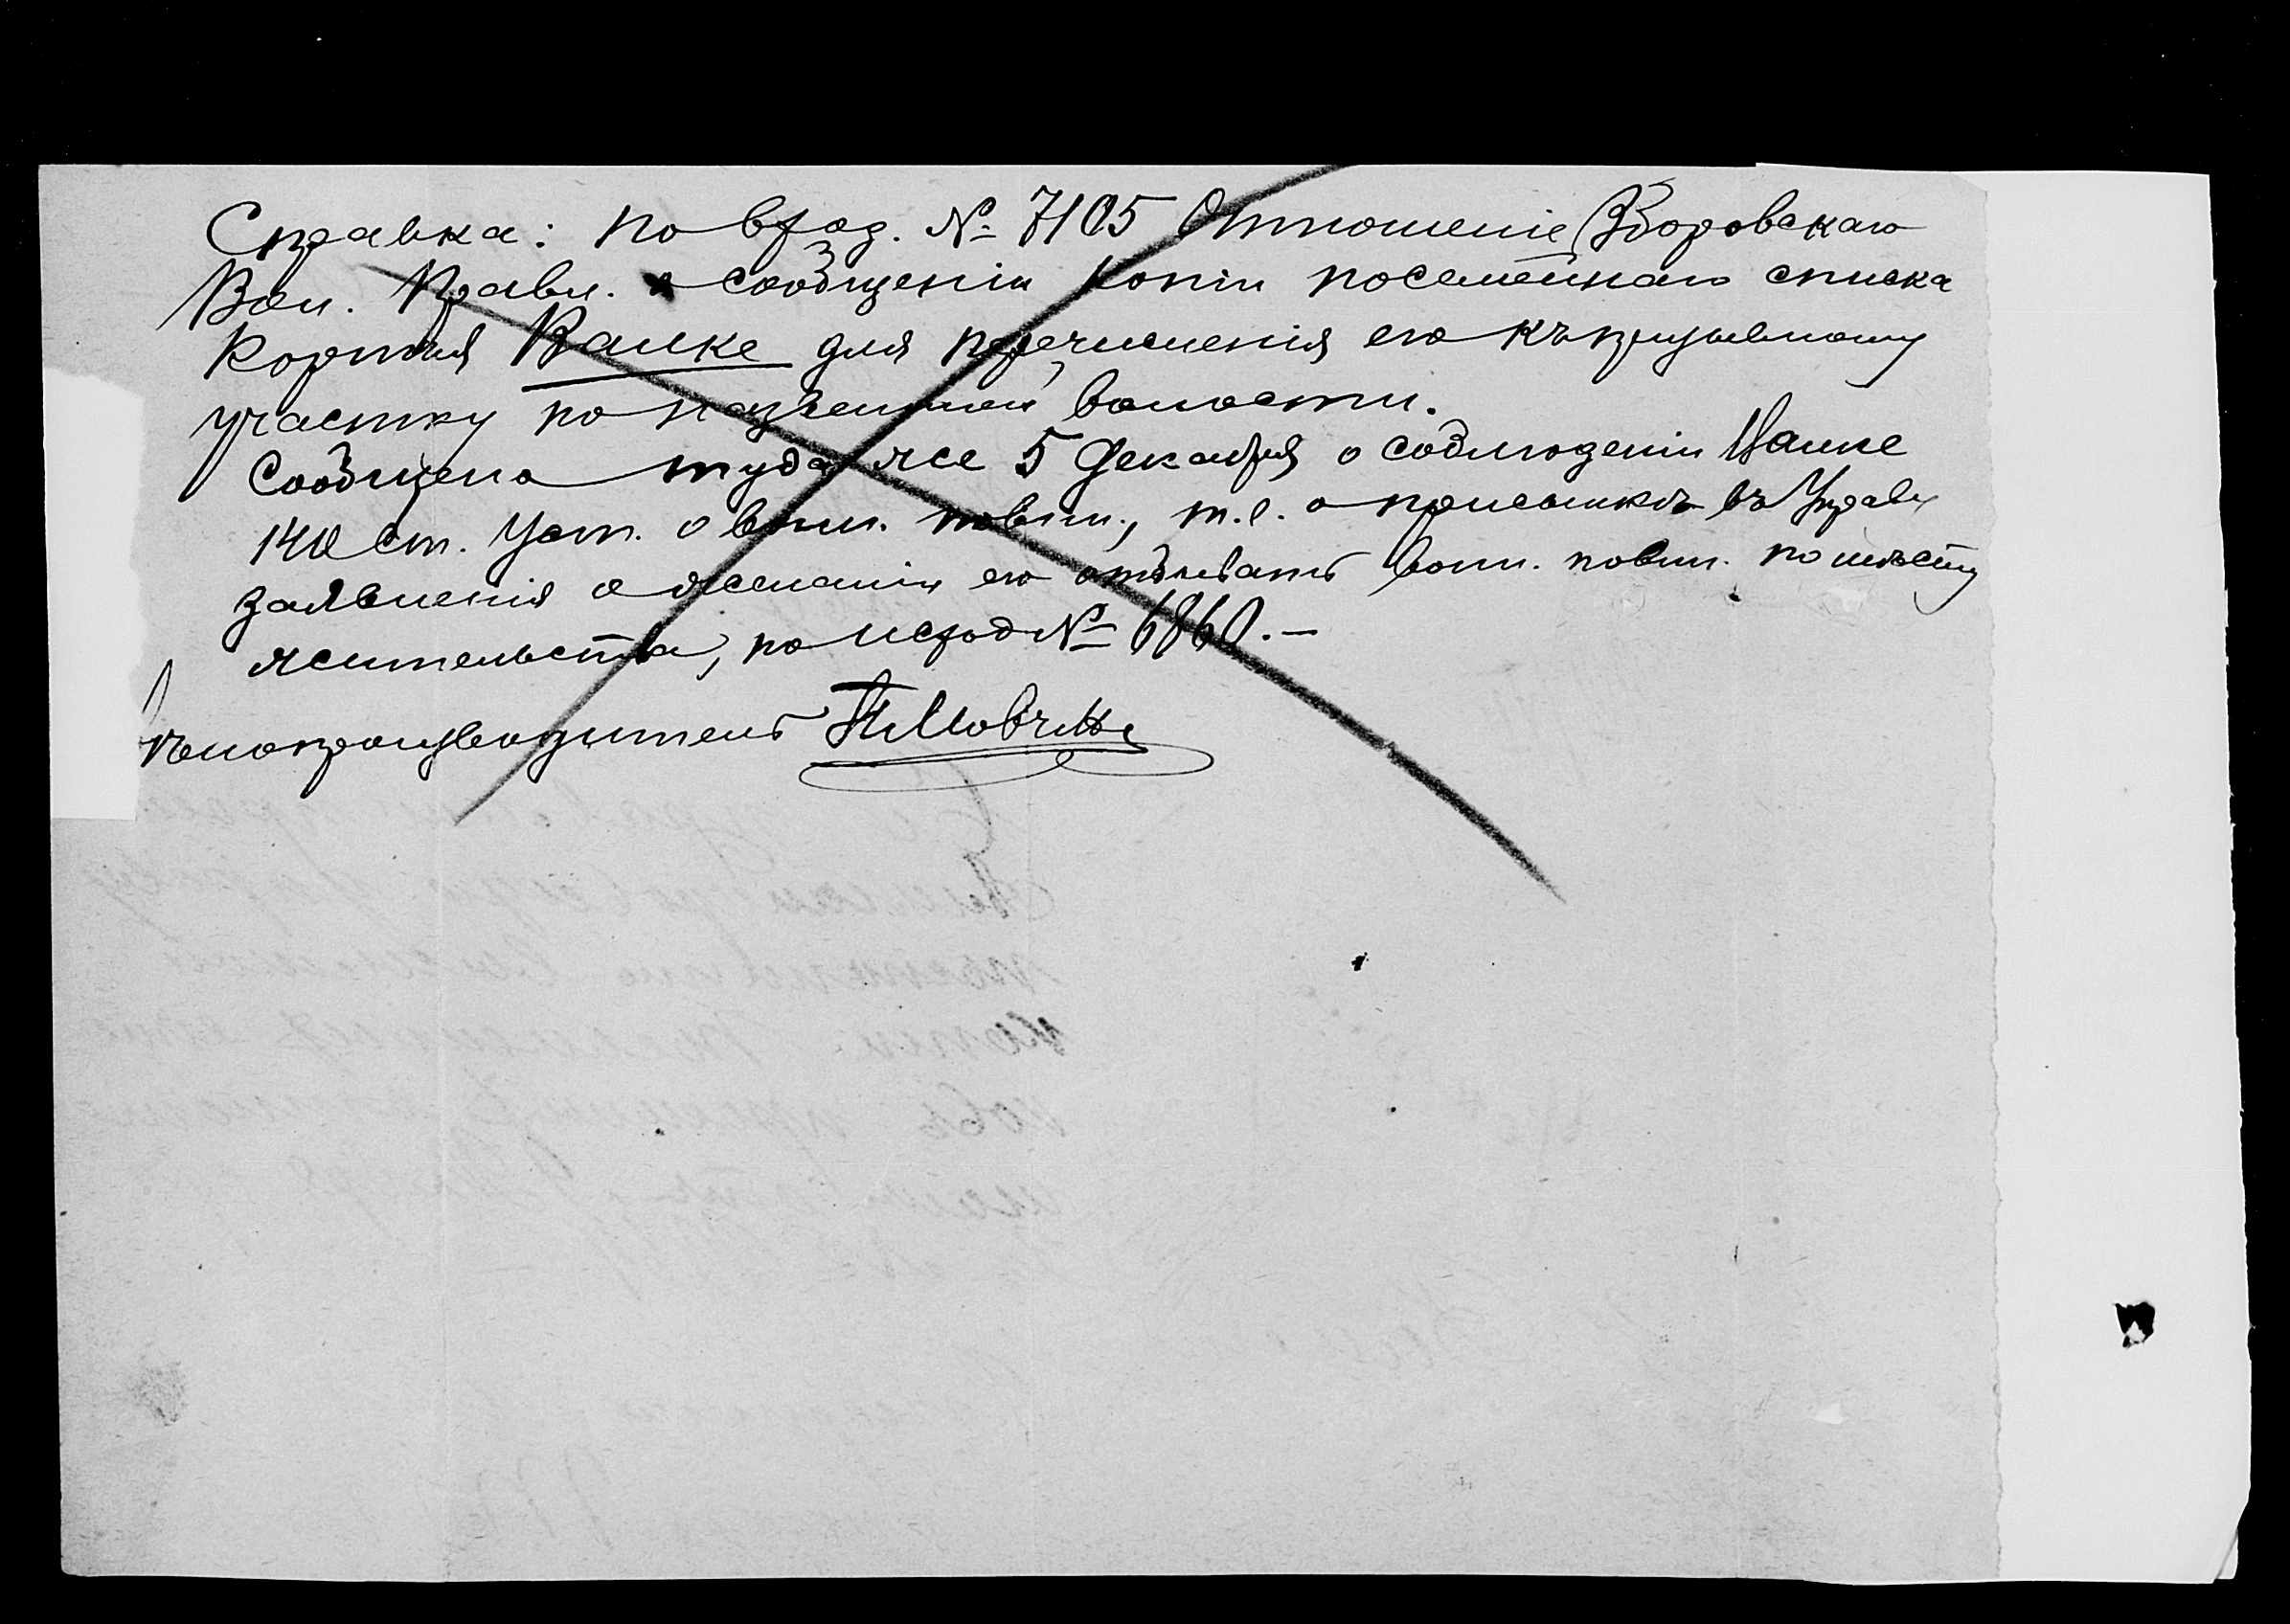 Справка: по вход. № 7105 Отношеніе Зборовскаго
Вол. Правл. о сообщеніи копіи посемейнаго списка
для перечисленія его къ призывному
участку по названной волости.
Сообщено туда же 5 Декабря о соблюденіи
140 ст. Уст. о воин. повин., т.е. о присылкѣ въ Управу
заявленія о желаніи его отбывать воин. повин. по мѣсту
жительства, по исход № 6860.—
Дѣлопроизводитель